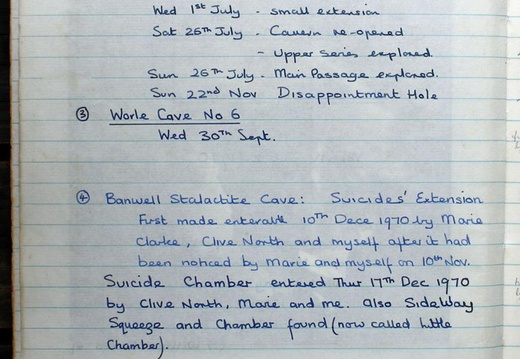 Wed 1st July . small extension
Sat 25th July . Cavern re-opened
- Upper Series explored.
Sun 26th July . Main Passage explored.
Sun 22nd Nov Disappointment Hole
③ Worle Cave No 6
Wed 30th Sept.
④ Banwell Stalactite Cave: Suicides' Extension
First made enterable 10th Dece 1970 by Marie
Clarke, Clive North and myself after it had
been noticed by Marie and myself on 10th Nov.
Suicide Chamber entered Thur 17th Dec 1970
by Clive North, Marie and me. Also Sideway
Squeeze and Chamber found (now called Little
Chamber).